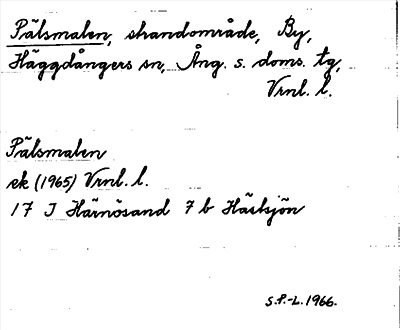 Pälsmalen, strandområde, By,
Häggdångers sn, Ång. s. doms. tg,
Vrnl. l.
Pälsmalen
ek (1965) Vrnl. l.
17 I Härnösand 7 b Hästsjön
S.P.-L. 1966.